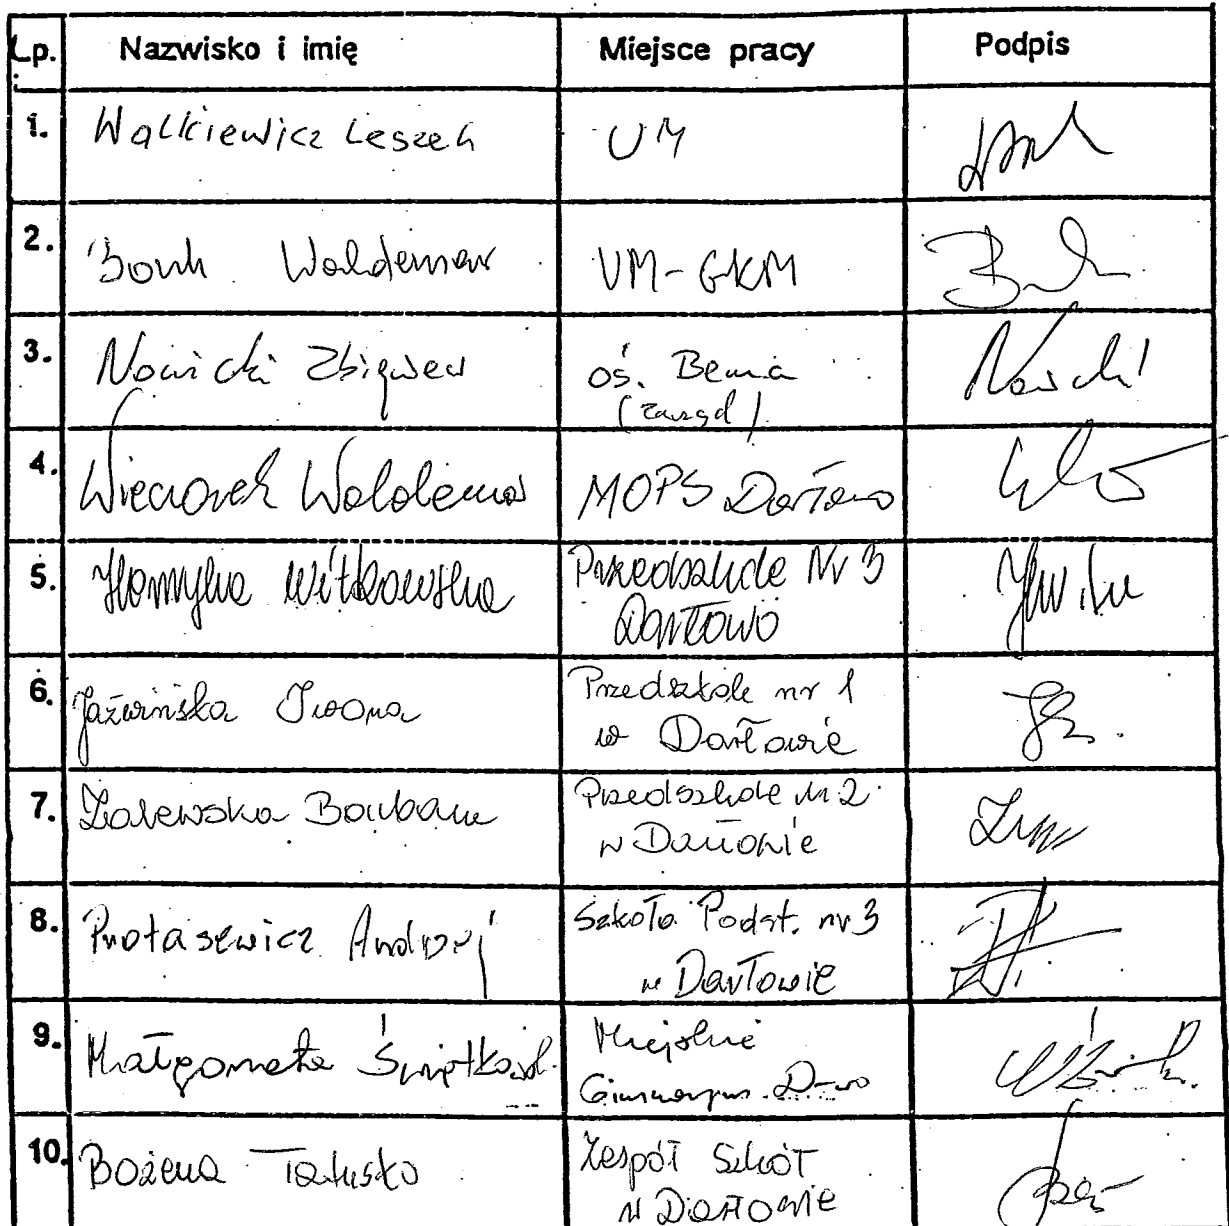 Lp. Nazwisko i imię Miejsce pracy Podpis
1. Walkiewicz Leszek UM
2. Bonk Waldemar UM-GKM
3. Nowicki Zbigniew oś. Bema Nowicki
(zarząd)
4. Wieczorek Waldemar MOPS Darłowo
5. Homyka Witkowska Przedszkole Nr 3
Darłowo
6. Jaźwińska Iwona Przedszkole nr 1
w Darłowie
7. Zalewska Barbara Przedszkole nr 2
w Darłowie
8. Protasewicz Andrzej Szkoła Podst. nr 3
w Darłowie
9. Małgorzata Miejskie
Gimnazjum D-wo
10. Bożena Tatusko Zespół Szkół
w Darłowie